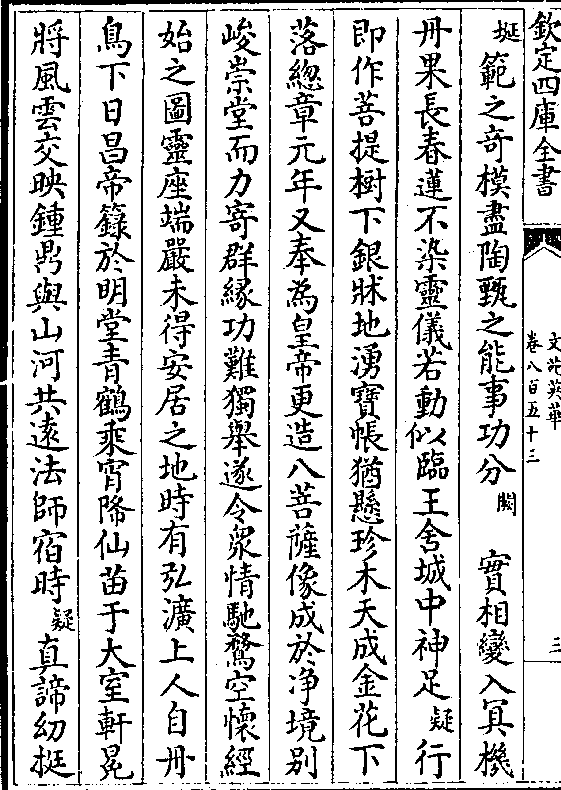 欽定四庫全書
文苑英華
卷八百五十三
三
埏範之奇模盡陶甄之能事功分闕　實相變入冥機
丹果長春蓮不染靈儀若動似臨王舍城中神足疑行
即作菩提樹下銀牀地湧寶帳猶懸珍木天成金花下
落總章元年又奉為皇帝更造八菩薩像成於净境别
峻崇堂而力寄群緣功難獨舉遂令衆情馳騖空懷經
始之圖靈座端嚴未得安居之地時有弘濵上人自丹
鳥下日昌帝籙於明堂青鶴乘宵降仙苗于大室軒冕
將風雲交映鍾鼎與山河共遠法師宿時疑真諦幼挺